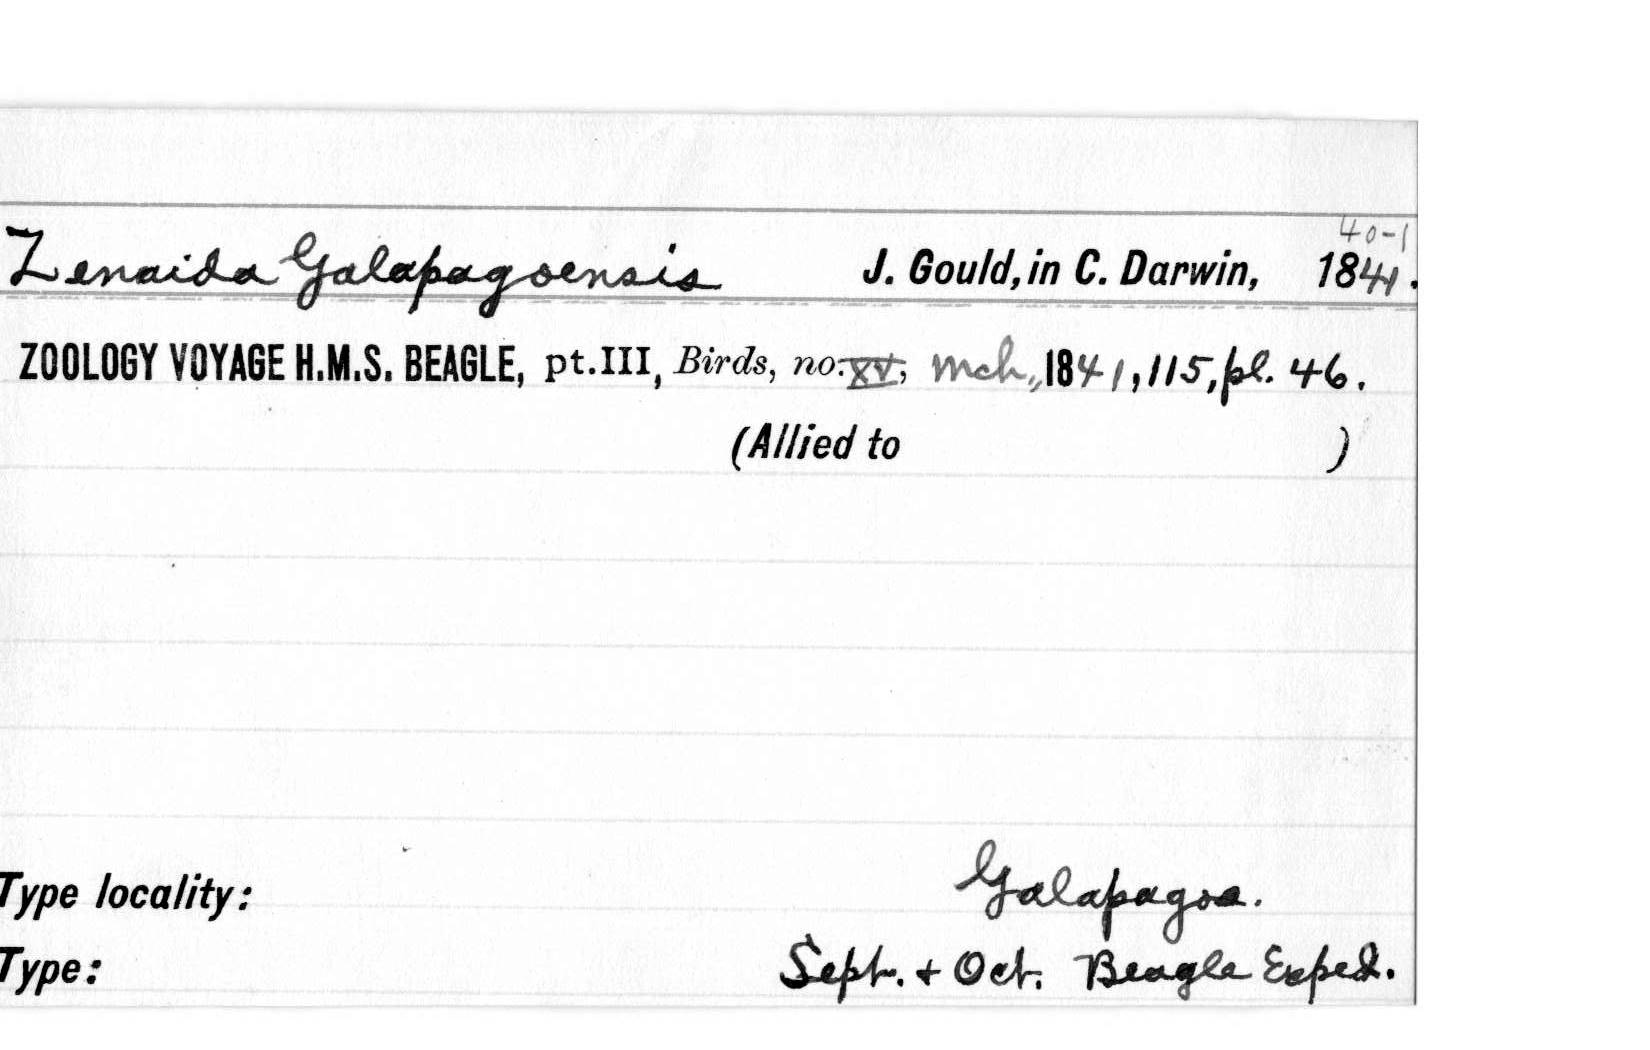 40-1
Zenaida Galapagoensis J. Gould, in C. Darwin, 1841.
ZOOLOGY VOYAGE H.M.S. BEAGLE, pt.III, Birds, no. XV, Mch., 1841, 115, pl. 46.
(Allied to )
Type locality: Galapagos.
Type: Sept. + Oct. Beagle Exped.